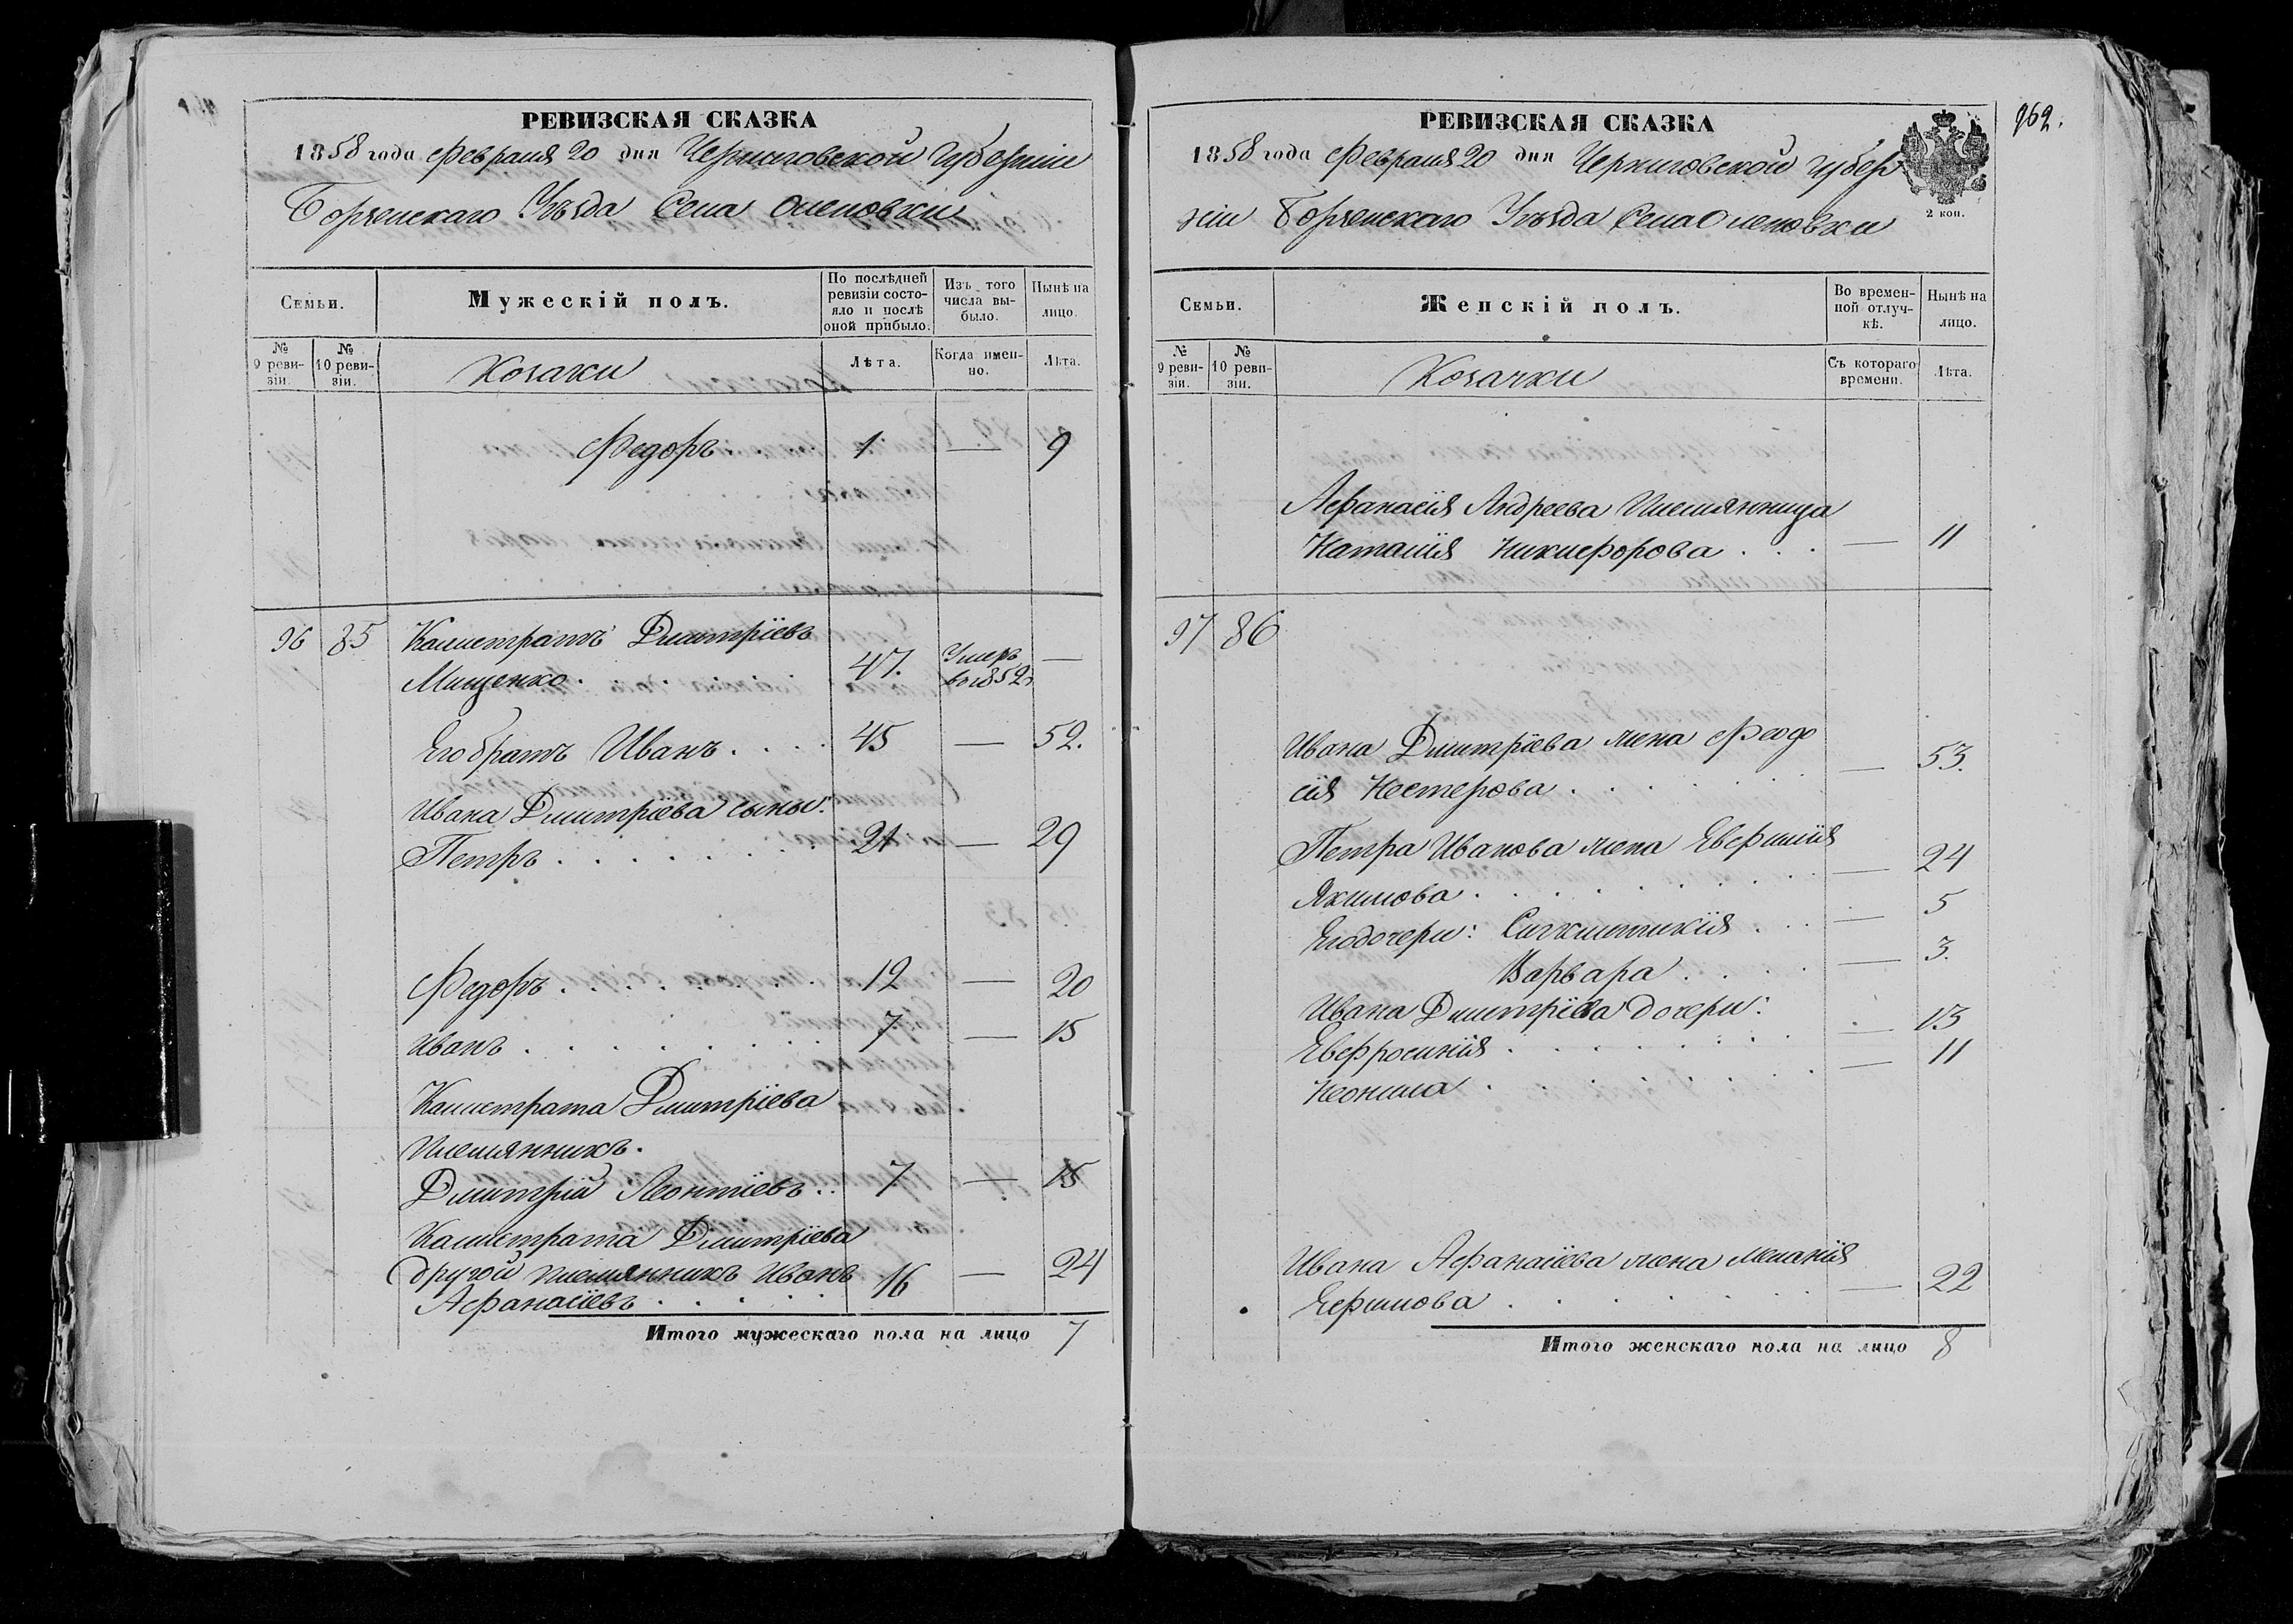 РЕВИЗСКАЯ СКАЗКА
1858 года Февраля 20 дня Черниговской Губерніи
Борзенскаго Уѣзда Села Оленовки
Семьи.
Мужескій полъ.
По послѣдней ревизіи состояло и послѣ оной прибыло.
Изъ того числа выбыло.
Нынѣ на лицо.
№ 9 ревизіи.
№ 10 ревизіи.
Козаки
Лѣта.
Когда именно.
Лѣта.
Федоръ 1 — 9
96 85 Калистратъ Дмитріевъ
Мищенко . . . . . . 47. Умеръ в 1852 —
Его братъ Иванъ . . . . 45 — 52.
Ивана Дмитріева сыны:
Петръ . . . . . . . 21 — 29
Федоръ . . . . . . . 12 — 20
Иванъ . . . . . . . . 7 — 15
Калистрата Дмитріева
племянникъ.
Дмитрій Леонтіевъ . . 7 — 15
Калистрата Дмитріева
другой племянникъ Иванъ 16 — 24
Афанасіевъ . . . . .
Итого мужескаго пола на лицо 7
962.
РЕВИЗСКАЯ СКАЗКА
1858 года Февраля 20 дня Черниговской Губер
ніи Борзенскаго Уѣзда Села Оленовки
2 коп.
Семьи.
Женскій полъ.
Во временной отлучкѣ.
Нынѣ на лицо.
№ 9 ревизіи.
№ 10 ревизіи.
Козачки
Съ котораго времени.
Лѣта.
Афанасія Андреева племянница
Наталія Никифорова . . . — 11
97 86
Ивана Дмитріева жена Феодо
сія Нестерова . . . . . — 53.
Петра Иванова жена Евфимія
Якимова . . . . . . . . — 24
Его дочери: Синклитикія . . . — 5
Варвара . . . . — 3.
Ивана Дмитріева дочери:
Евфросинія . . . . . . . . — 13
Неонила . . . . . . . . — 11
Ивана Афанасіева жена Меланія
Ефимова . . . . . . . — 22
Итого женскаго пола на лицо 8